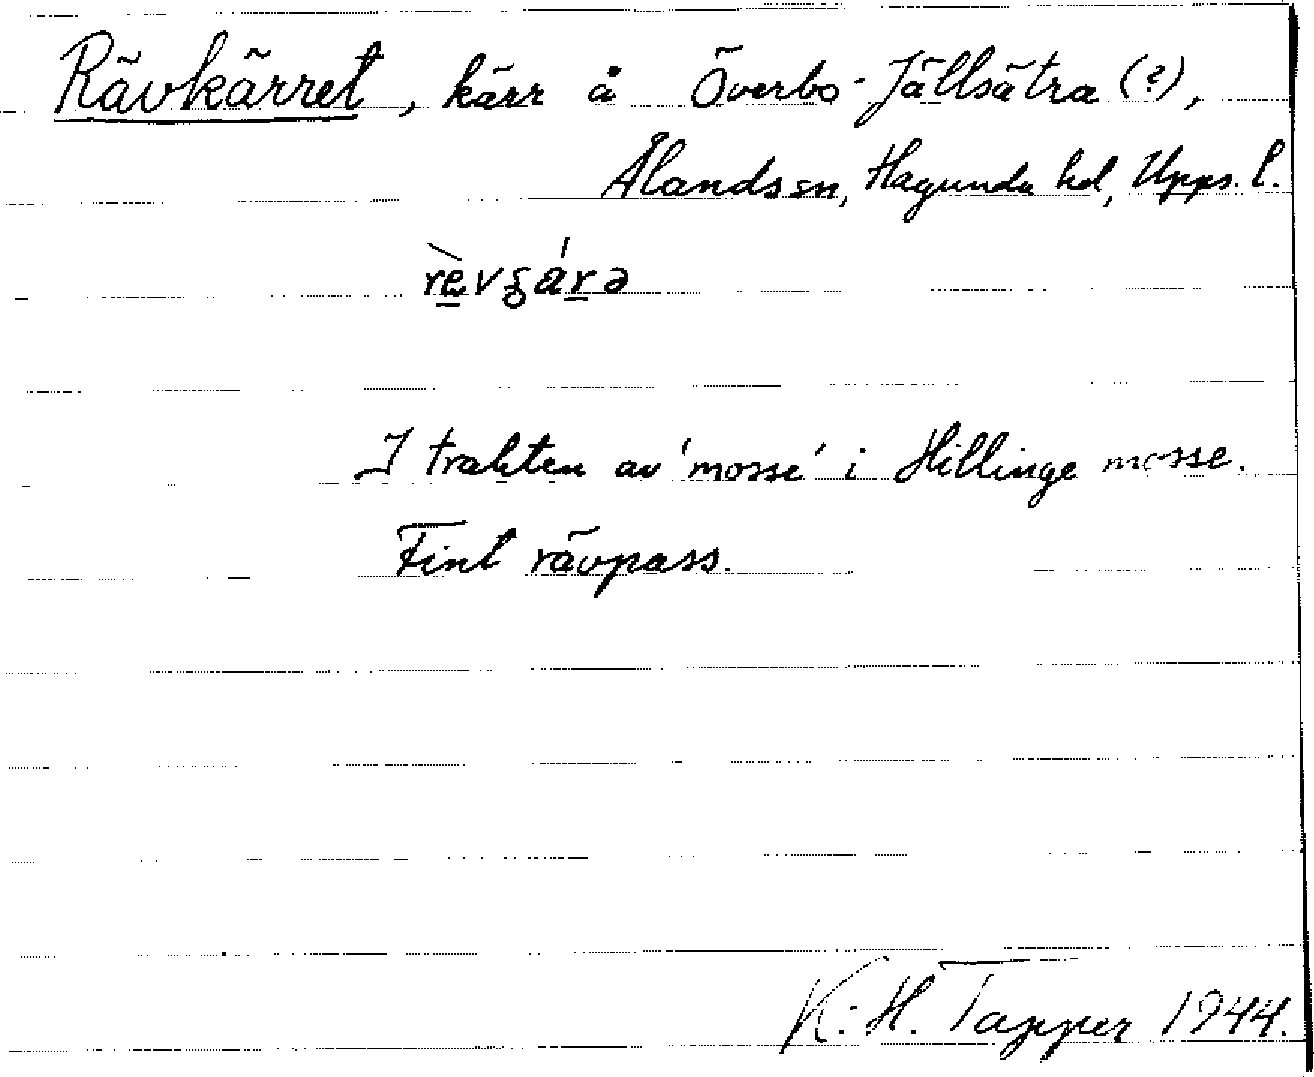 Rävkärret, kärr å Överbo-Jällsätra (?),
Ålands sn, Hagunda hd, Upps. l.
I trakten av 'mosse' i Hillinge mosse.
Fint rävpass.
K.-H. Tapper 1944.